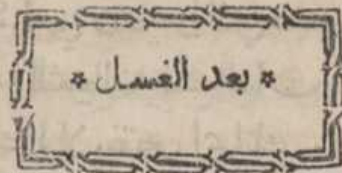 * بعد الغسل *